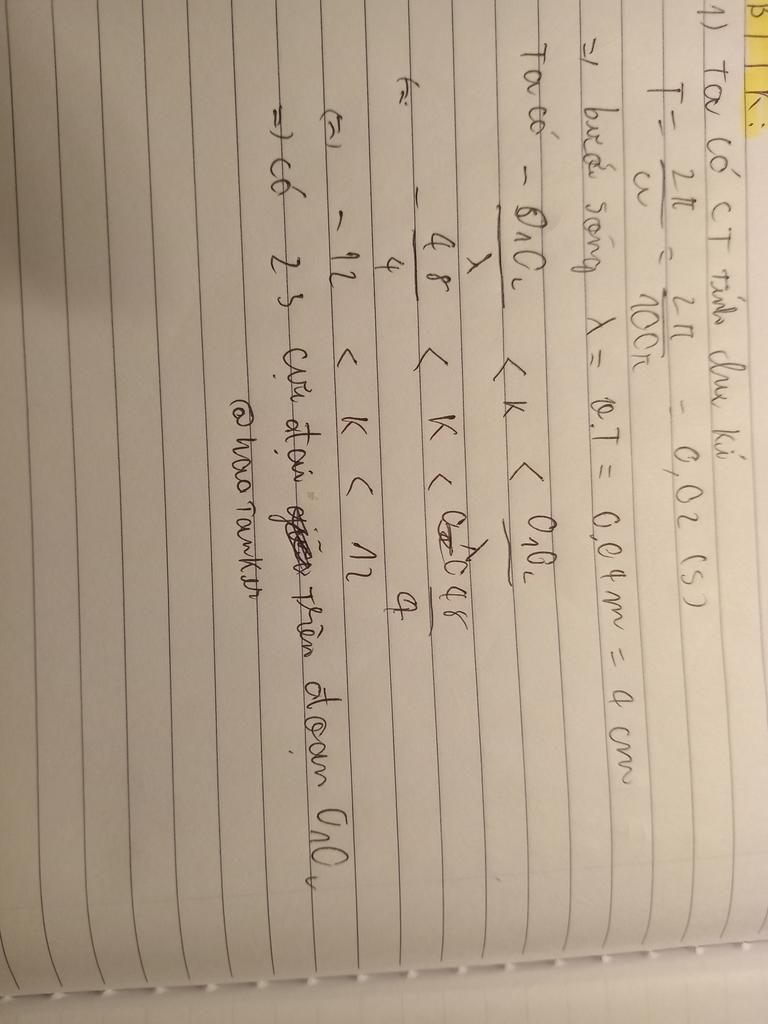 B T K:
1) Ta có CT tính chu kì
T = 2π/ω = 2π/100π = 0,02 (s)
=) bước sóng λ = v.T = 0,04 m = 4 cm
Ta có - O₁O₂/λ < K < O₁O₂/λ
(=) - 48/4 < K < 48/4
(=) - 12 < K < 12
=) có 23 cực đại trên đoạn O₁O₂